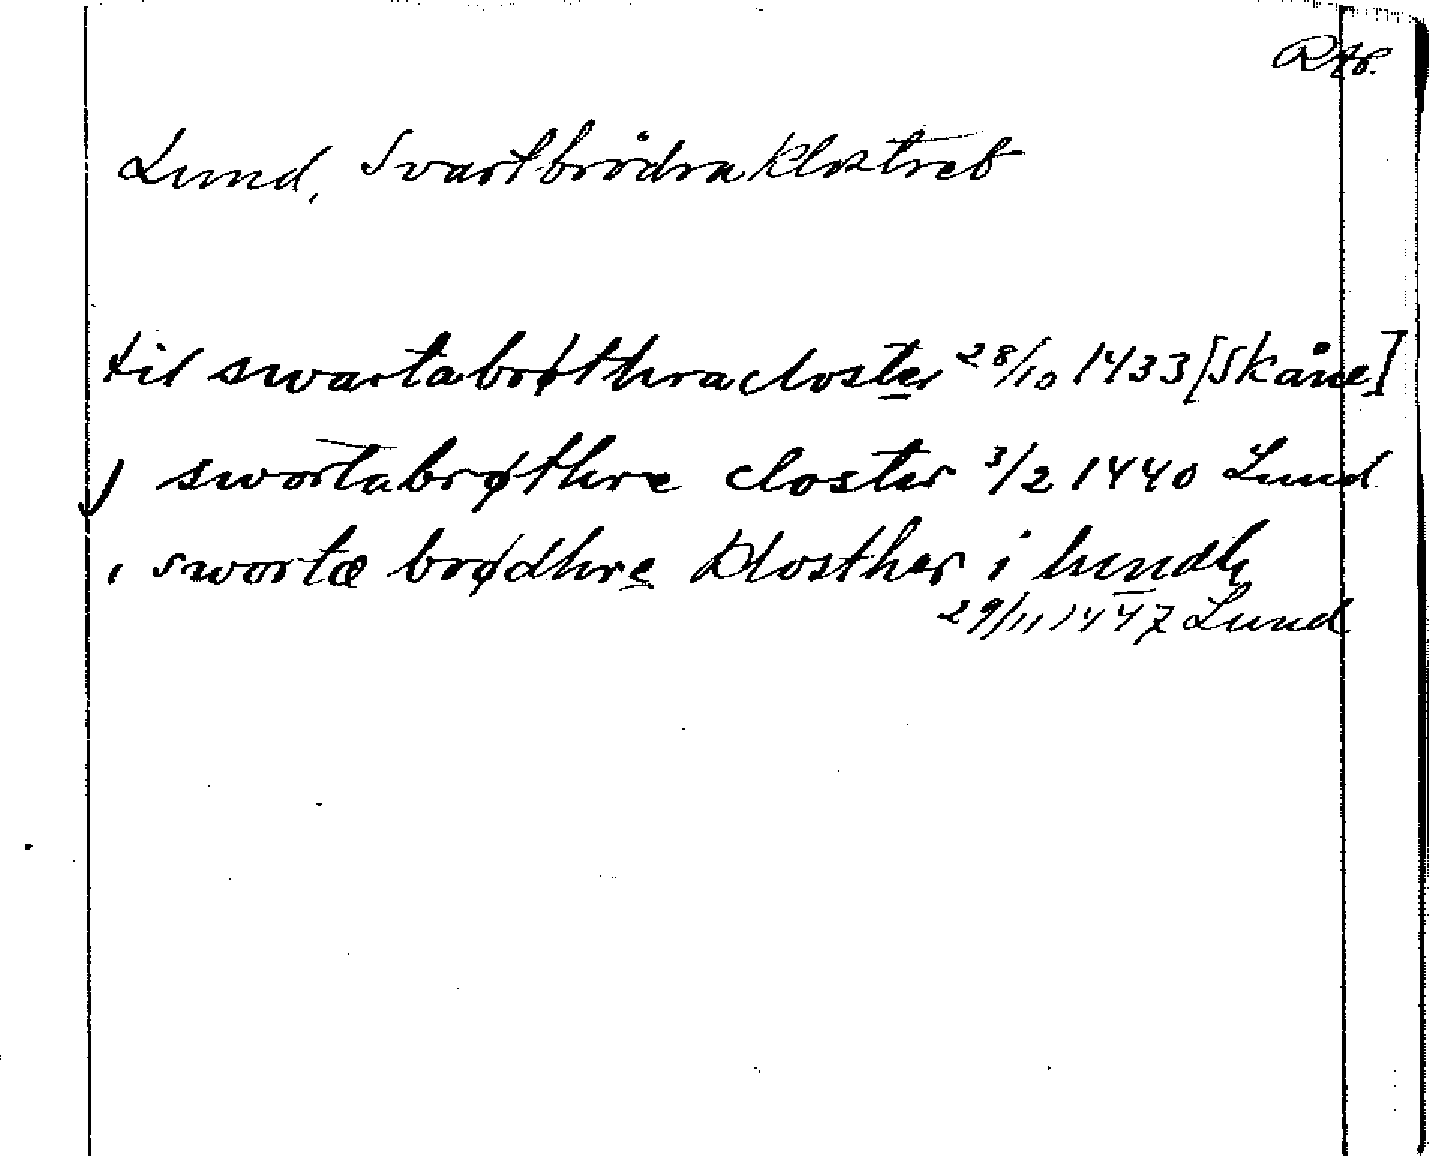 Lund, Svartbrödraklostret
til swartabrøthracloster 28/10 1433 [Skåne]
j swortabrøthre closter 3/2 1440 Lund
i swortæ brødhre klosther i lundh
29/11 1447 Lund